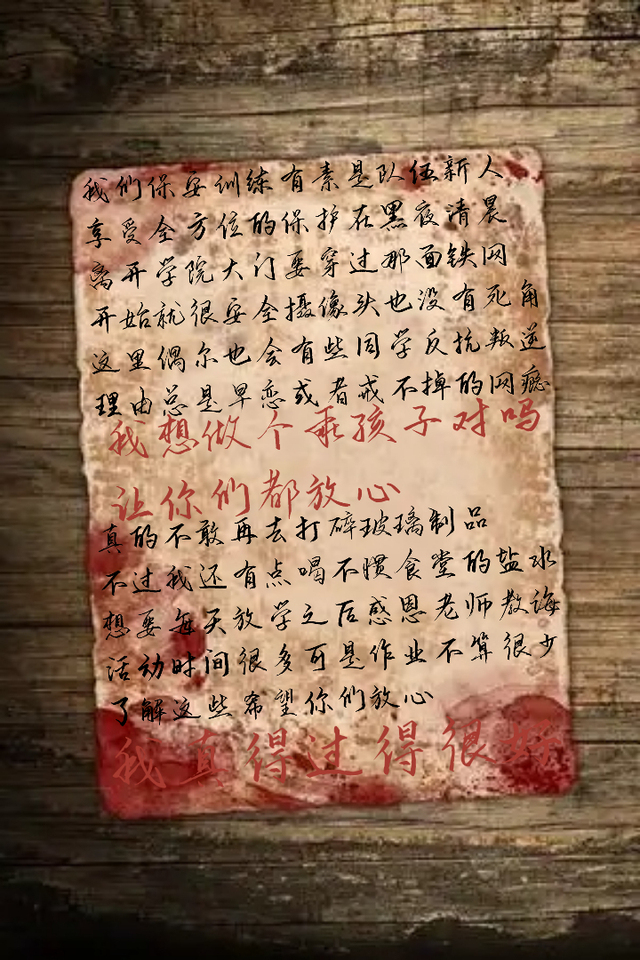 我们保安训练有素是队伍新人
享受全方位的保护在黑夜清晨
离开学院大门要穿过那面铁网
开始就很安全摄像头也没有死角
这里偶尔也会有些同学反抗叛逆
理由总是早恋或者戒不掉的网瘾
我想做个乖孩子对吗
让你们都放心
真的不敢再去打碎玻璃制品
不过我还有点喝不惯食堂的盐水
想要每天放学之后感恩老师教诲
活动时间很多可是作业不算很少
了解这些希望你们放心
我真得过得很好